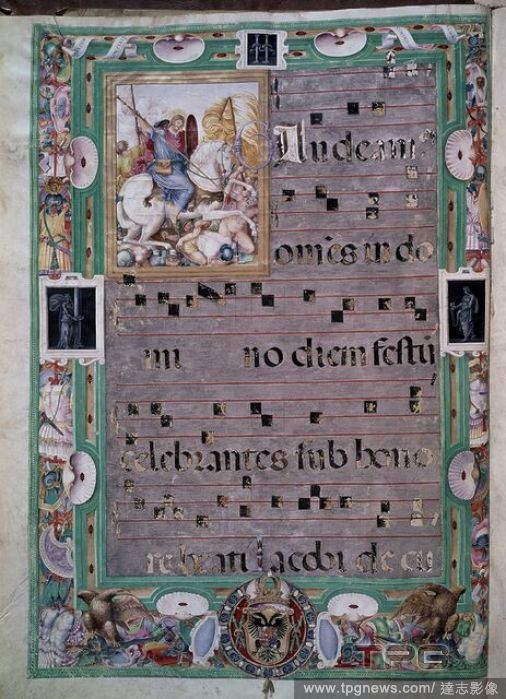 Audeam
om̄es in do
mi no diem festū
celebrantes sub hono
re beati Jacobi de cu
TPG
www.tpgnews.com/ 達志影像